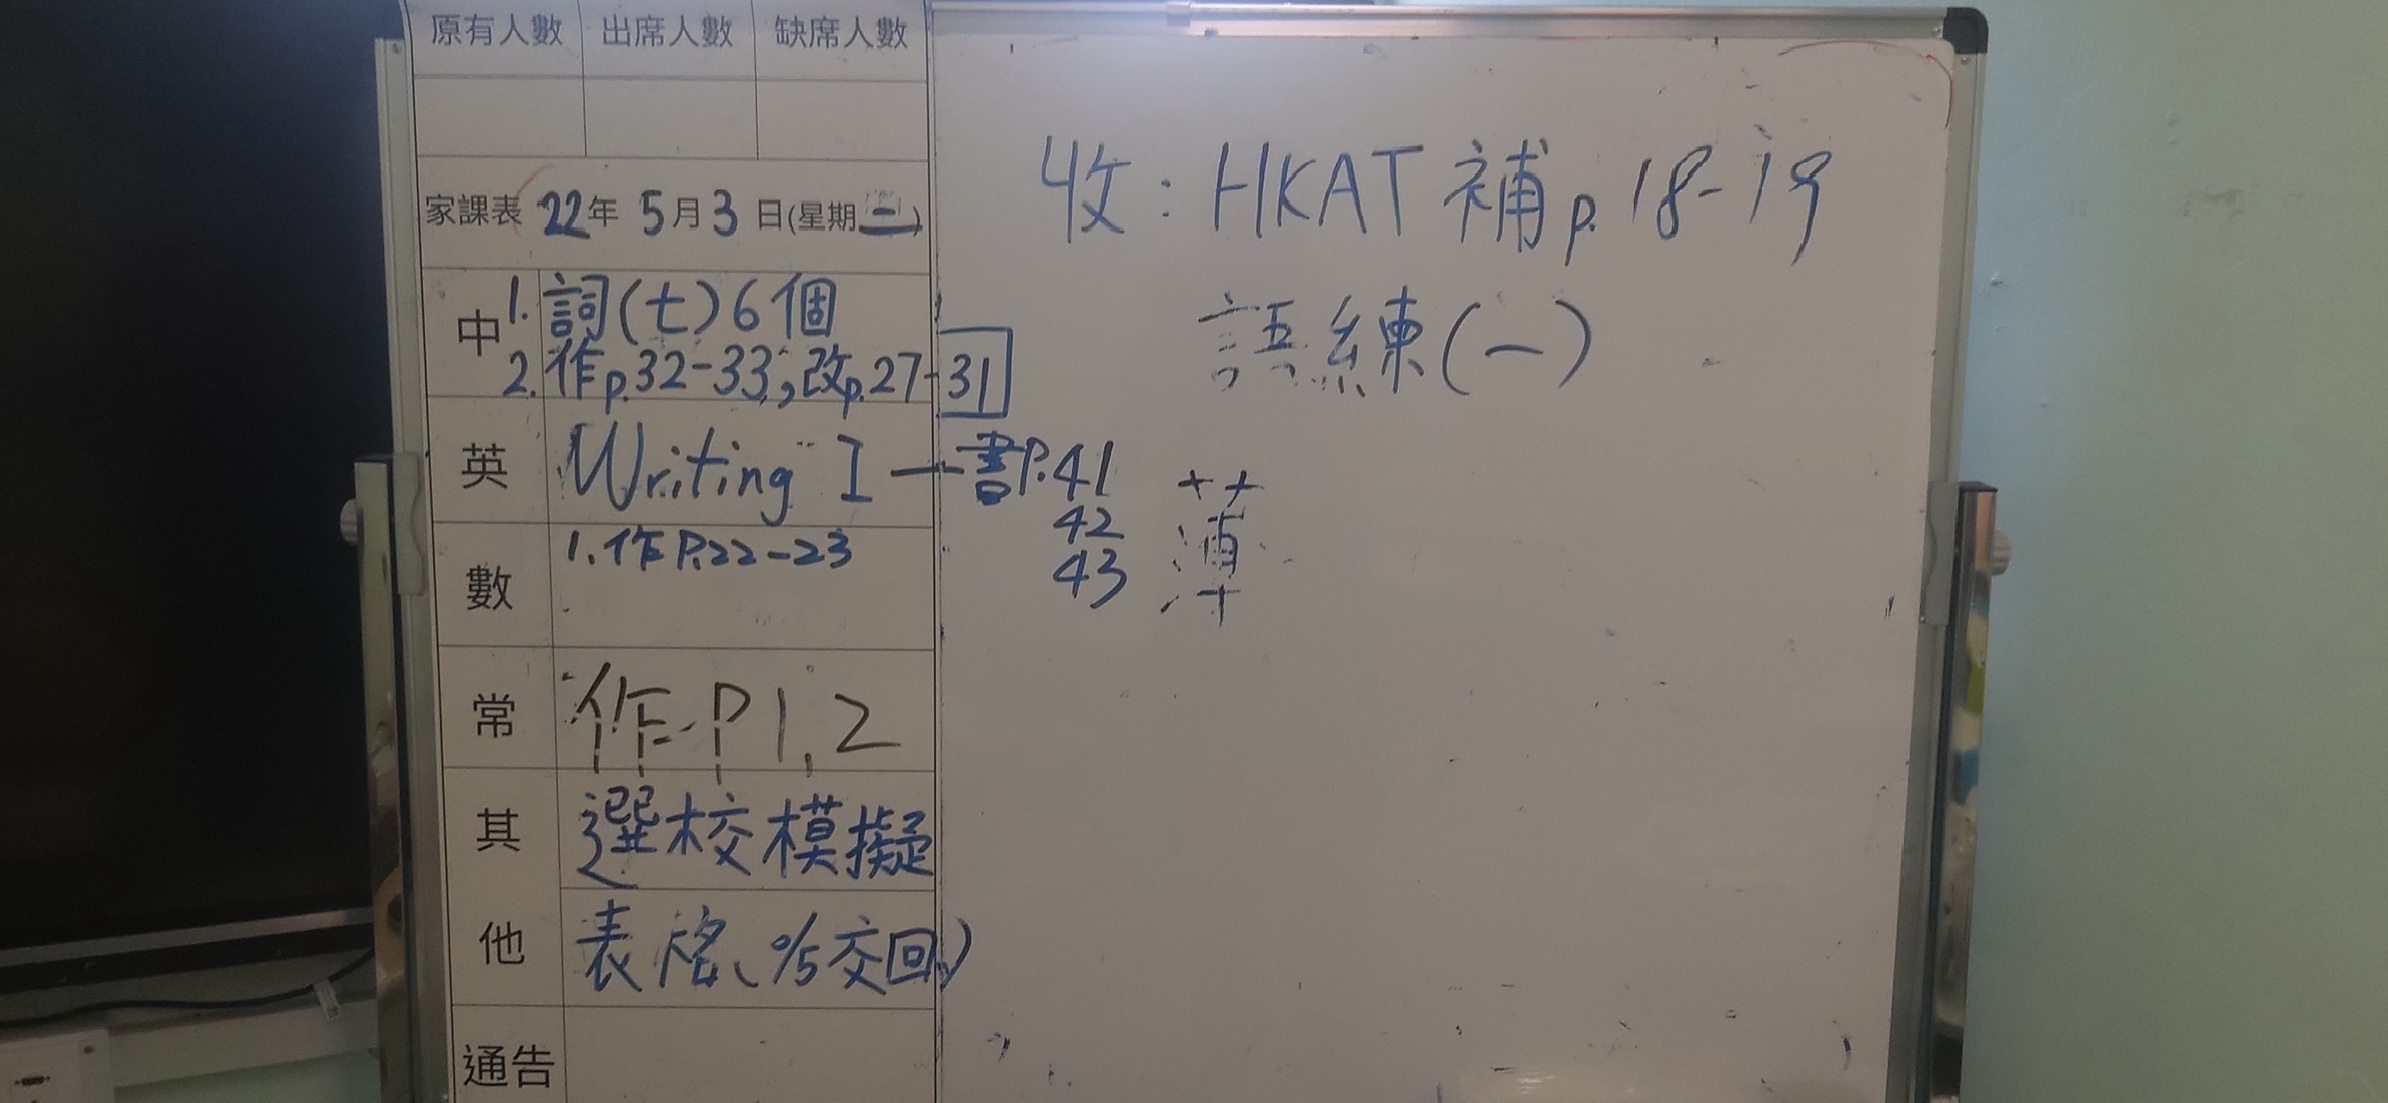 原有人數 出席人數 缺席人數
家課表 22年 5月3日(星期二)
中 1. 詞(七)6個
2. 作p.32-33,改p.27-31
英 Writing I — 書P.41
42
43
數 1.作P.22-23
常 作P1,2
其他 選校模擬
表格(%交回)
通告
收:HKAT 補p.18-19
語練(一)
薄